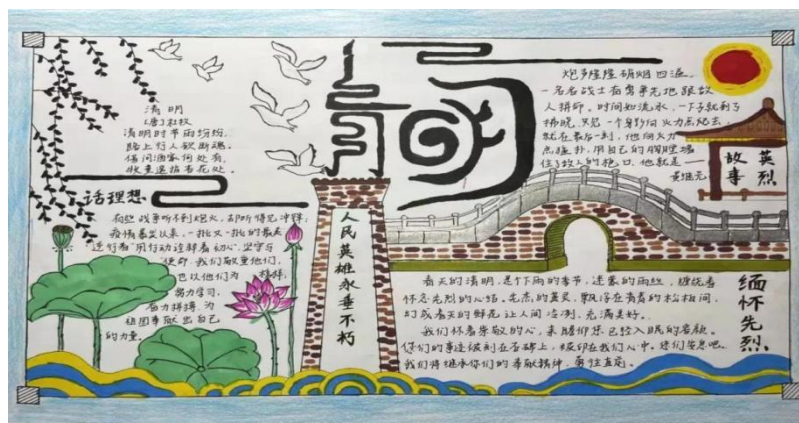 清明
(唐)杜牧
清明时节雨纷纷,
路上行人欲断魂。
借问酒家何处有,
牧童遥指杏花处。
话理想
有些战事听不到炮火,却听得见冲锋,
疫情暴发以来,一批又一批的最美
逆行者用行动诠释着初心,坚守与
使命,我们敬重他们,
也以他们为榜样,
努力学习,
奋力拼搏,为
祖国奉献出自己
的力量。
人民英雄永垂不朽
國
炮声隆隆硝烟四溢,
一名名战士有勇争无地跟敌
人拼命。时间如流水,一下子就到了
拂晓,只见一个身影向火力点爬去,
就在最后一刻,他向火力
点猛扑,用自己的胸膛堵
住了敌人的枪口,他就是——
黄继光
英烈
故事
春天的清明,是个下雨的季节,迷蒙的雨丝,缠绕着
怀念先烈的心结,先烈的英灵,飘浮在青青的松柏间,
幻成春天的鲜花,让人间
充满美好。
我们怀着崇敬的心,来瞻仰您已经入眠的容颜。
你们的事迹镌刻在石碑上,烙印在我们心中。您们安息吧,
我们将继承你们的奉献精神,勇往直前。
缅怀先烈